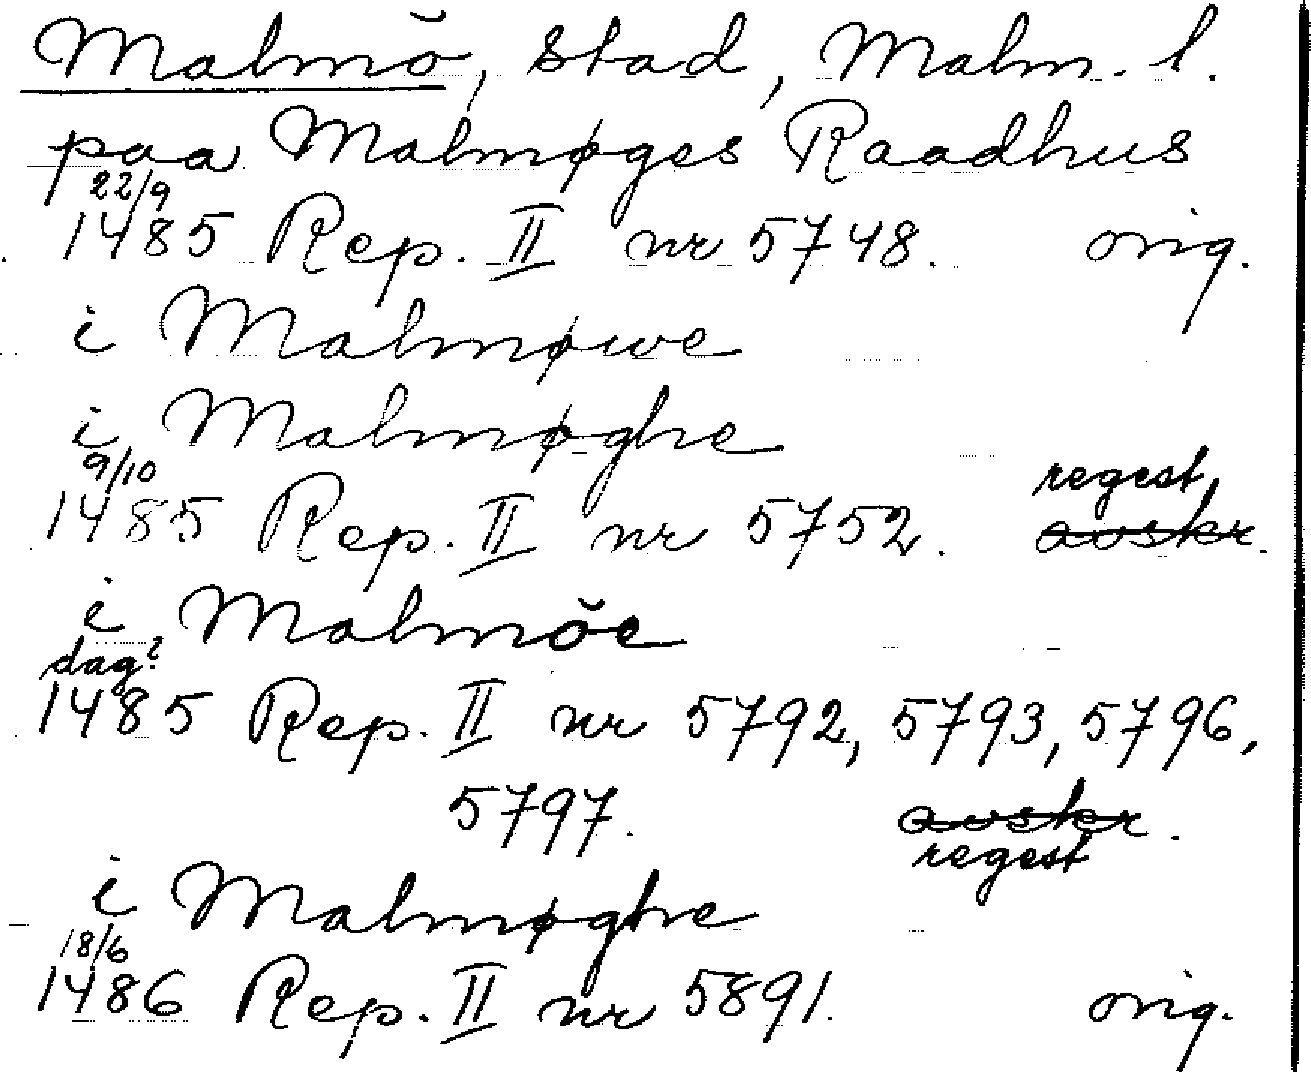 Malmö, stad, Malm. l.
paa Malmøges Raadhus
22/9
1485 Rep. II nr 5748. orig.
i Malmøwe
i Malmøghe
9/10
regest,
1485 Rep. II nr 5752. avskr.
i Malmöe
dag?
1485 Rep. II nr 5792, 5793, 5796,
5797. avskr.
regest
i Malmøghe
18/6
1486 Rep. II nr 5891. orig.